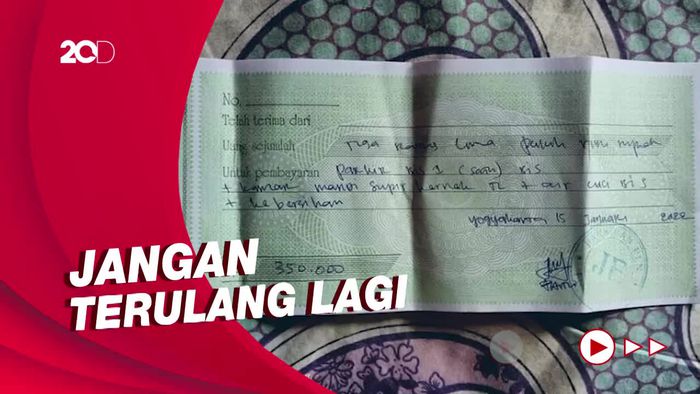 20D
No.
Telah terima dari
Uang sejumlah Tiga Ratus Lima puluh ribu rupiah
Untuk pembayaran parkir Bis 1 (satu) Bis
+ kamar mandi supir kernek TL + air cuci Bis
+ kebersihan
Yogyakarta 15 Januari 2022
350.000
JF
JANGAN
TERULANG LAGI